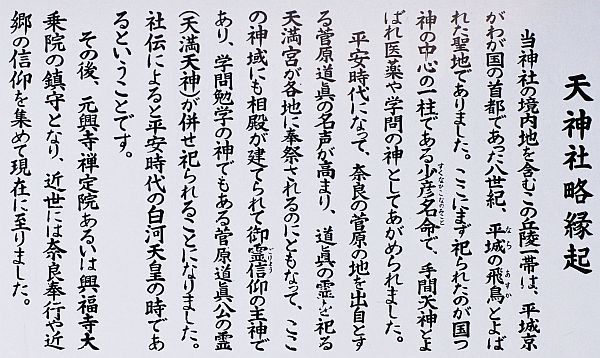 天神社略縁起
当神社の境内地を含むこの丘陵一帯は、平城京
がわが国の首都であった八世紀、平城の飛鳥とよば
なら
あすか
れた聖地でありました。ここにまず祀られたのが国つ
神の中心の一柱である少彦名命で、手間天神とよ
すくなひこなのみこと
ばれ医薬や学問の神としてあがめられました。
平安時代になって、奈良の菅原の地を出自とす
る菅原道眞の名声が高まり、道眞の霊を祀る
天満宮が各地に奉祭されるのにともなって、ここ
の神域にも相殿が建てられて御霊信仰の主神で
ごりょう
あり、学問勉学の神でもある菅原道眞公の霊
(天満天神)が併せ祀られることになりました。
社伝によると平安時代の白河天皇の時であ
るということです。
その後、元興寺禅定院あるいは興福寺大
乗院の鎮守となり、近世には奈良奉行や近
郷の信仰を集めて現在に至りました。